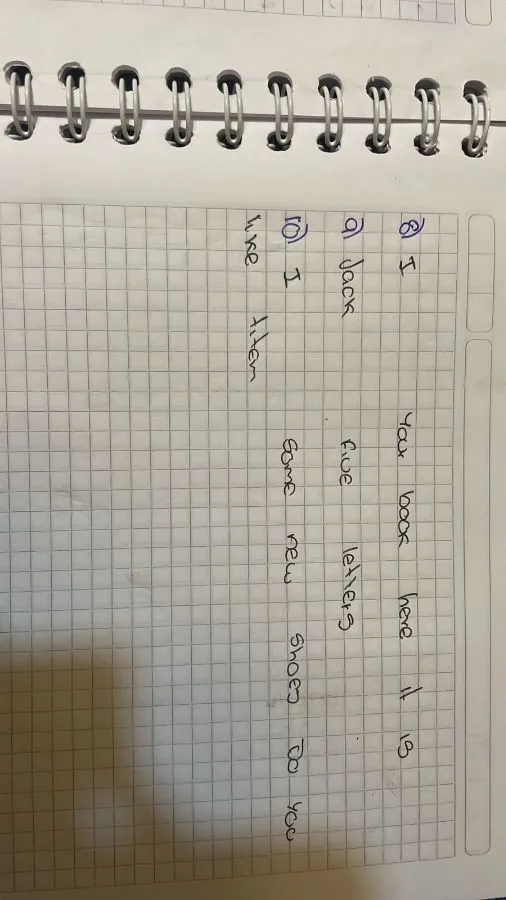 8) I your book here it is
9) Jack five letters
10) I some new shoes Do you
like titem